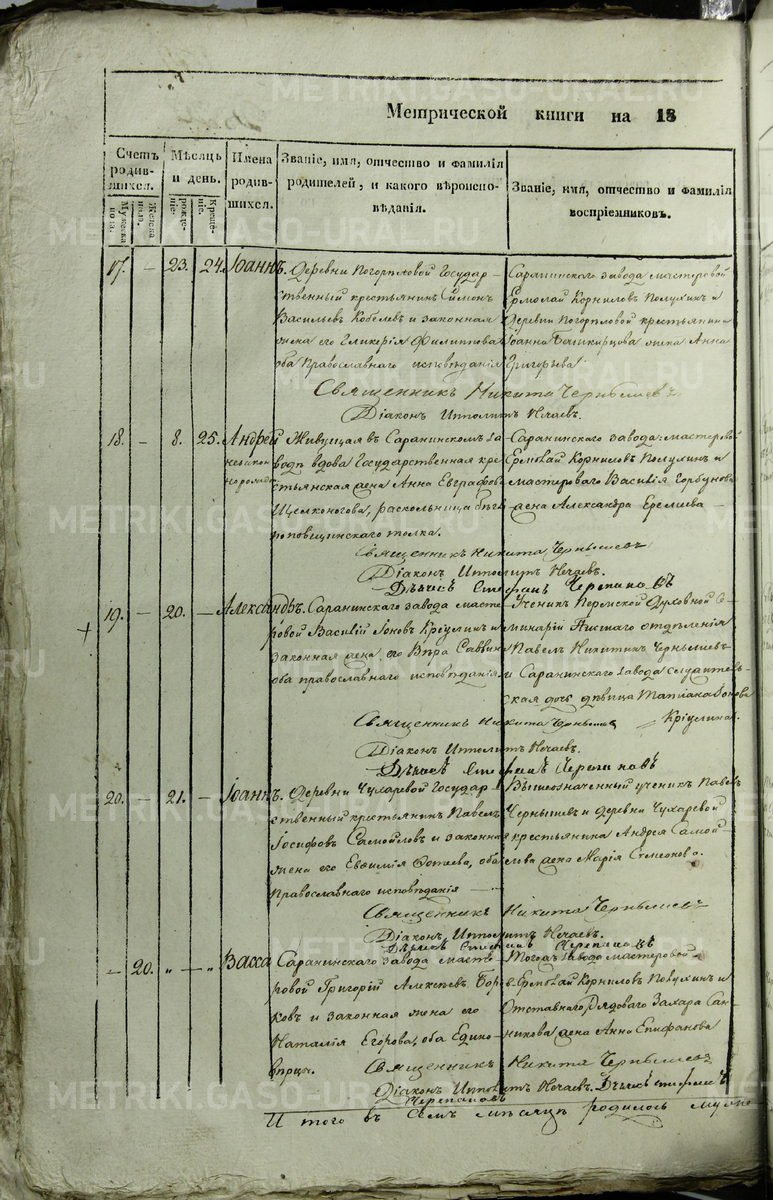 Метрической книги на 18
Счетъ родившихся.
Мужеска пола.
Женска пола.
Мѣсяцъ и день.
рожденіе.
Крещеніе.
Имена родившихся.
Званіе, имя, отчество и фамилія родителей, и какого вѣроисповѣданія.
Званіе, имя, отчество и фамилія воспріемниковъ.
17. – 23. 24. Іоаннъ.
Деревни Погорѣловой Государ-
ственный крестьянинъ Симонъ
Васильевъ Кобелевъ и законная
жена его Гликерія Филиппова
оба Православнаго исповѣданія
Саранинскаго завода мастеровой
Ермолай Корниловъ Полухинъ и
Деревни Погорѣловой крестьянина
Іоанна Башкирцова жена Анна
Григорьева
Священникъ Никита Чернышевъ
Діаконъ Ипполитъ Нечаевъ.
18. – 8. 25. Андрей
незакон
норожден
Живущая въ Саранинскомъ за-
водѣ вдова Государственная кре-
стьянская жена Анна Евграфова
Щелконогова, раскольница бѣгло-
поповщинскаго толка.
Саранинскаго завода: мастеровой
Ермолай Корниловъ Полухинъ и
мастероваго Василія Горбунова
жена Александра
Священникъ Никита Чернышевъ
Діаконъ Ипполитъ Нечаевъ.
Дьячекъ Стефанъ Черепановъ
19. – 20. – Александръ.
Саранинскаго завода масте-
ровой Василій Іоновъ Кріулинъ и
законная жена его Вѣра Саввина
оба православнаго исповѣданія
Ученикъ Пермской Духовной Се-
минаріи Низшаго отдѣленія
Павелъ Никитинъ Чернышевъ
и Саранинскаго завода служитель-
ская дочь дѣвица Татіана Іонова
Кріулина.
Священникъ Никита Чернышевъ
Діаконъ Ипполитъ Нечаевъ.
Дьячекъ Стефанъ Черепановъ
20. – 21. – Іоаннъ.
Деревни Чухаревой Государ-
ственный крестьянинъ Павелъ
Іосифовъ Самойловъ и законная
жена его Евѳимія Фотеева, оба
Православнаго исповѣданія
Вышеозначенный ученикъ Павелъ
Чернышевъ и деревни Чухаревой
крестьянина Андрея Самой-
лова жена Марія Симеонова.
Священникъ Никита Чернышевъ
Діаконъ Ипполитъ Нечаевъ.
Дьячекъ Стефанъ Черепановъ
– 20. „ – „ Васса
Саранинскаго завода масте-
ровой Григорій Алексѣевъ
и законная жена его
Наталія Егорова, оба Едино-
вѣрцы.
Тогожъ завода мастеровой
Ермолай Корниловъ Полухинъ и
Отставнаго Рядоваго Захара Сан-
никова жена Анна Епифанова
Священникъ Никита Чернышевъ
Діаконъ Ипполитъ Нечаевъ. Дьячекъ Стефанъ
Черепановъ
И того въ семъ мѣсяцѣ родилось муже
METRIKI.GASO-URAL.RU